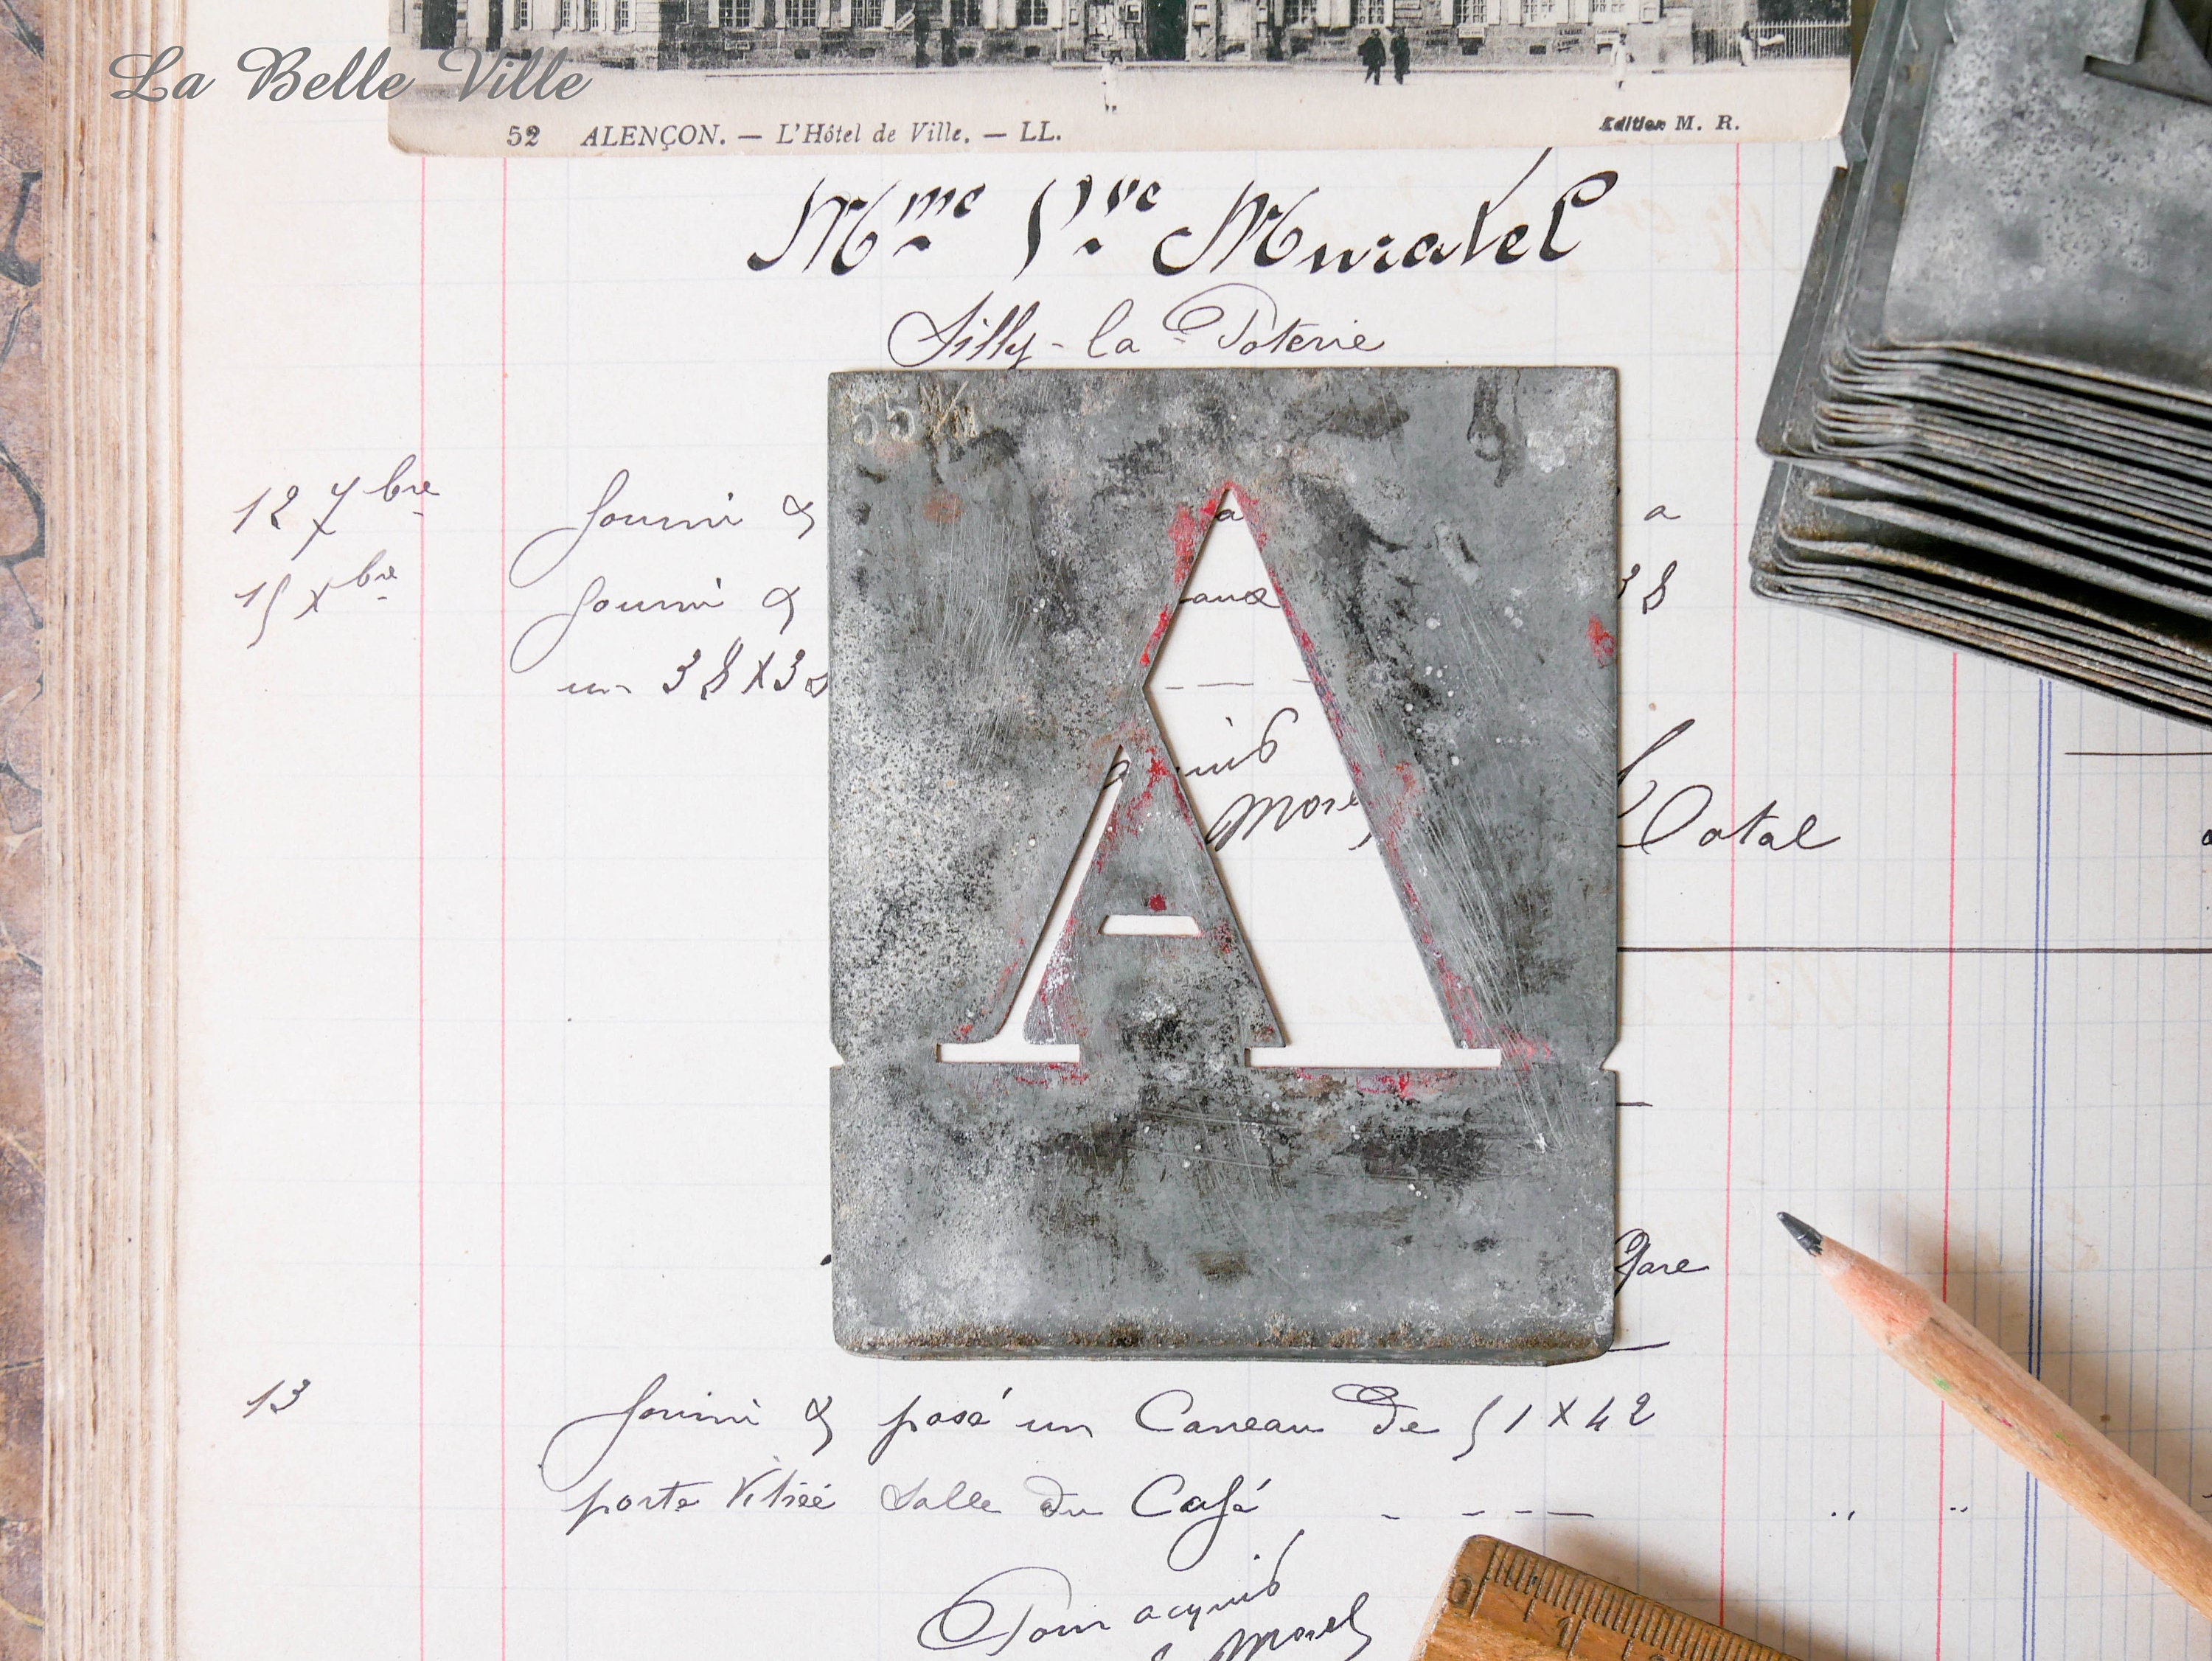 La Belle Ville
52 ALENÇON. — L'Hôtel de Ville. — LL.
Edition M. R.
Mme Vve Muratel
Silly-la-Poterie
55 M/M
12 7bre fourni & a a
15 Xbre fourni & aux 38
un 38 X 38
Total
Morel
A
Gare
13 fourni & posé un Carreau de 51 X 42
porte vitrée Salle du Café
Pour acquit
Morel